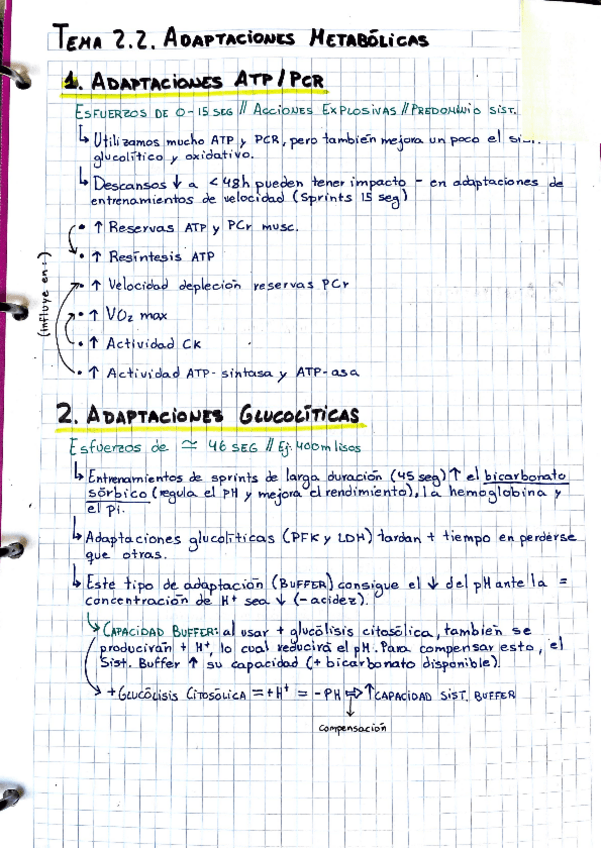 TEMA 2.2. ADAPTACIONES METABÓLICAS
1. ADAPTACIONES ATP/PCR
ESFUERZOS DE 0-15 SEG // ACCIONES EXPLOSIVAS // PREDOMINIO SIST.
↳ Utilizamos mucho ATP y PCR, pero también mejora un poco el
glucolítico y oxidativo.
↳ Descansos ↓ a <48h pueden tener impacto - en adaptaciones de
entrenamientos de velocidad (Sprints 15 seg)
• ↑ Reservas ATP y PCr musc.
• ↑ Resíntesis ATP
• ↑ Velocidad depleción reservas PCr
• ↑ VO2 max
• ↑ Actividad CK
• ↑ Actividad ATP-sintasa y ATP-asa
(influye en:)
2. ADAPTACIONES GLUCOLÍTICAS
Esfuerzos de ≃ 46 SEG // Ej. 400m lisos
↳ Entrenamientos de sprints de larga duración (45 seg) ↑ el bicarbonato
sórbico (regula el PH y mejora el rendimiento), la hemoglobina y
el Pi.
↳ Adaptaciones glucolíticas (PFK y LDH) tardan + tiempo en perderse
que otras.
↳ Este tipo de adaptación (BUFFER) consigue el ↓ del pH ante la =
concentración de H+ sea ↓ (- acidez).
↳ CAPACIDAD BUFFER: al usar + glucólisis citosólica, también se
producirán + H+, lo cual reducirá el pH. Para compensar esto, el
Sist. Buffer ↑ su capacidad (+ bicarbonato disponible).
→ + GLUCÓLISIS CITOSÓLICA = + H+ = - PH ⇒ ↑ CAPACIDAD SIST. BUFFER
compensación